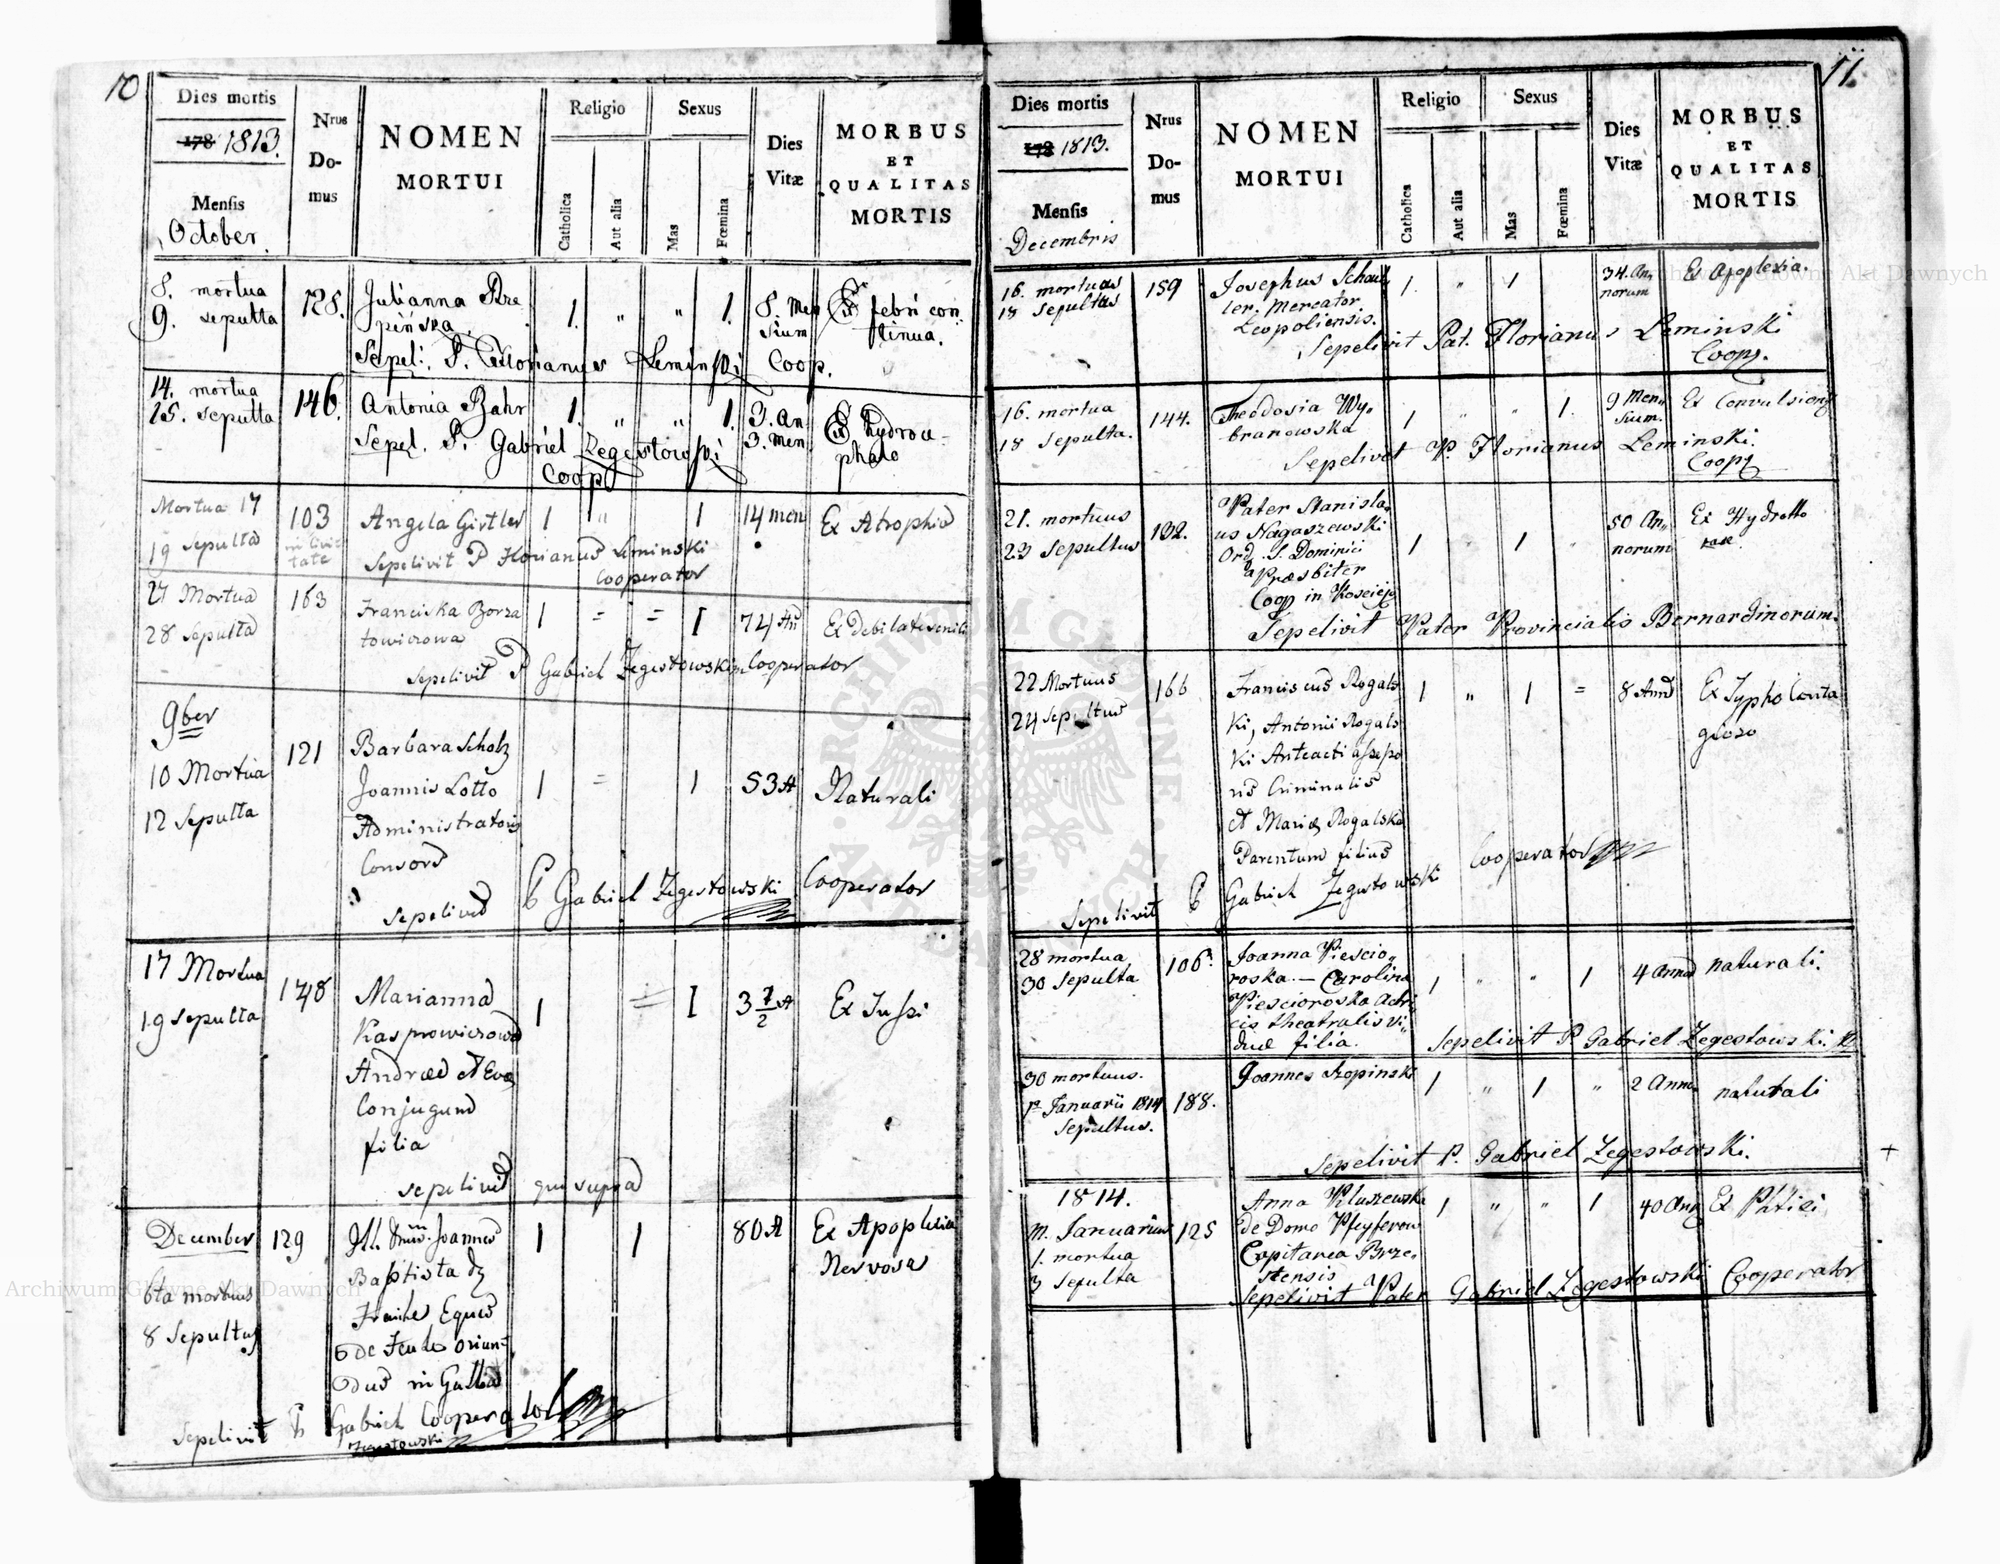 10
Dies mortis
178 1813.
Mensis
October.
Nrus
Do-
mus
NOMEN
MORTUI
Religio
Catholica
Aut alia
Sexus
Mas
Fœmina
Dies
Vitæ
MORBUS
ET
QUALITAS
MORTIS
8. mortua
9. sepulta
128.
Julianna Rze
pińska.
1. " " 1.
8. Men
sium
Ex febri con
tinua.
Sepel: P. Florianus Leminski Coop.
14. mortua
15. sepulta
146.
Antonia Bahr
1. " " 1.
3. An
3. men
Ex hydroce-
phalo
Sepel. P. Gabriel Zegestowski
Coop
Mortua 17
19 sepulta
103
in civi
tate
Angela Girtler
1 " 1
14 men
Ex Atrophia
Sepelivit P Florianus Leminski
Cooperator
27 Mortua
28 sepulta
163
Franciska Borza
towiczowa
1 = = 1
74 An
Ex debilate senili
sepelivit P Gabriel Zegestowski Cooperator
9ber
10 Mortua
12 sepulta
121
Barbara Scholz
Joannis Lotto
Administratoris
Consors
1 = 1
53 A
Naturali
sepelivit P Gabriel Zegestowski Cooperator
17 Mortua
19 sepulta
148
Marianna
Kasprowiczowa
Andreæ et Evæ
Conjugum
filia
1 = 1
3 1/2 A
Ex Tussi
sepelivit qui supra
December
6ta mortuus
8 sepultus
129
Ill. Dnus. Joannes
Baptista de
Eques
de oriun-
dus in Gallia
1 1
80 A
Ex Apoplexia
Nervosa
Sepelivit P Gabriel Cooperator
Zegestowski
11.
Dies mortis
178 1813.
Mensis
Decembris
Nrus
Do-
mus
NOMEN
MORTUI
Religio
Catholica
Aut alia
Sexus
Mas
Fœmina
Dies
Vitæ
MORBUS
ET
QUALITAS
MORTIS
16. mortuus
18 sepultus
159
Josephus Schau
ler. Mercator
Leopoliensis.
1. " 1
34. An
norum
Ex Apoplexia.
Sepelivit Pat. Florianus Leminski
Coop.
16. mortua
18 sepulta.
144.
Theodosia Wy-
branowska
1 " " 1.
9 Men-
sium.
Ex Convulsione
Sepelivit P. Florianus Leminski.
Coop
21. mortuus
23 sepultus
132.
Pater Stanisla-
us Nagaszewski
Ord. S. Dominici
Præsbiter
Coop in
1 1 "
50 An-
norum
Ex Hydrotto
race.
Sepelivit Pater Provincialis Bernardinorum.
22 Mortuus
24 sepultus
166
Franciscus Rogals
ki, Antonii Rogals
ki Anteacti assesso
ris Criminalis
et Mariæ Rogalska
Parentum filius
1 " 1 =
8 Ann
Ex Typho Conta
gioso
Cooperator
Sepelivit P Gabriel Zegestowski
28 mortua
30 sepulta
106.
Joanna Piescio-
roska. — Carolina
Piescioroska Actri
cis theatralis vi-
duæ filia.
1 " " 1
4 Anno
naturali.
Sepelivit P Gabriel Zegestowski.
30 mortuus.
1a Januarii 1814
Sepultus.
188.
Joannes Szopinski
1 " 1 "
2 Anno
naturali
Sepelivit P. Gabriel Zegestowski.
+
1814.
M. Januarius
1. mortua
3 sepulta
125
Anna Kluszewska
de Domo Pfeyferow
Capitanea Brze-
stensis
1 " " 1
40 Ann
Ex Ptisi
Sepelivit Pater Gabriel Zegestowski Cooperator
ARCHIWUM GŁÓWNE AKT DAWNYCH
Archiwum Główne Akt Dawnych
Archiwum Główne Akt Dawnych